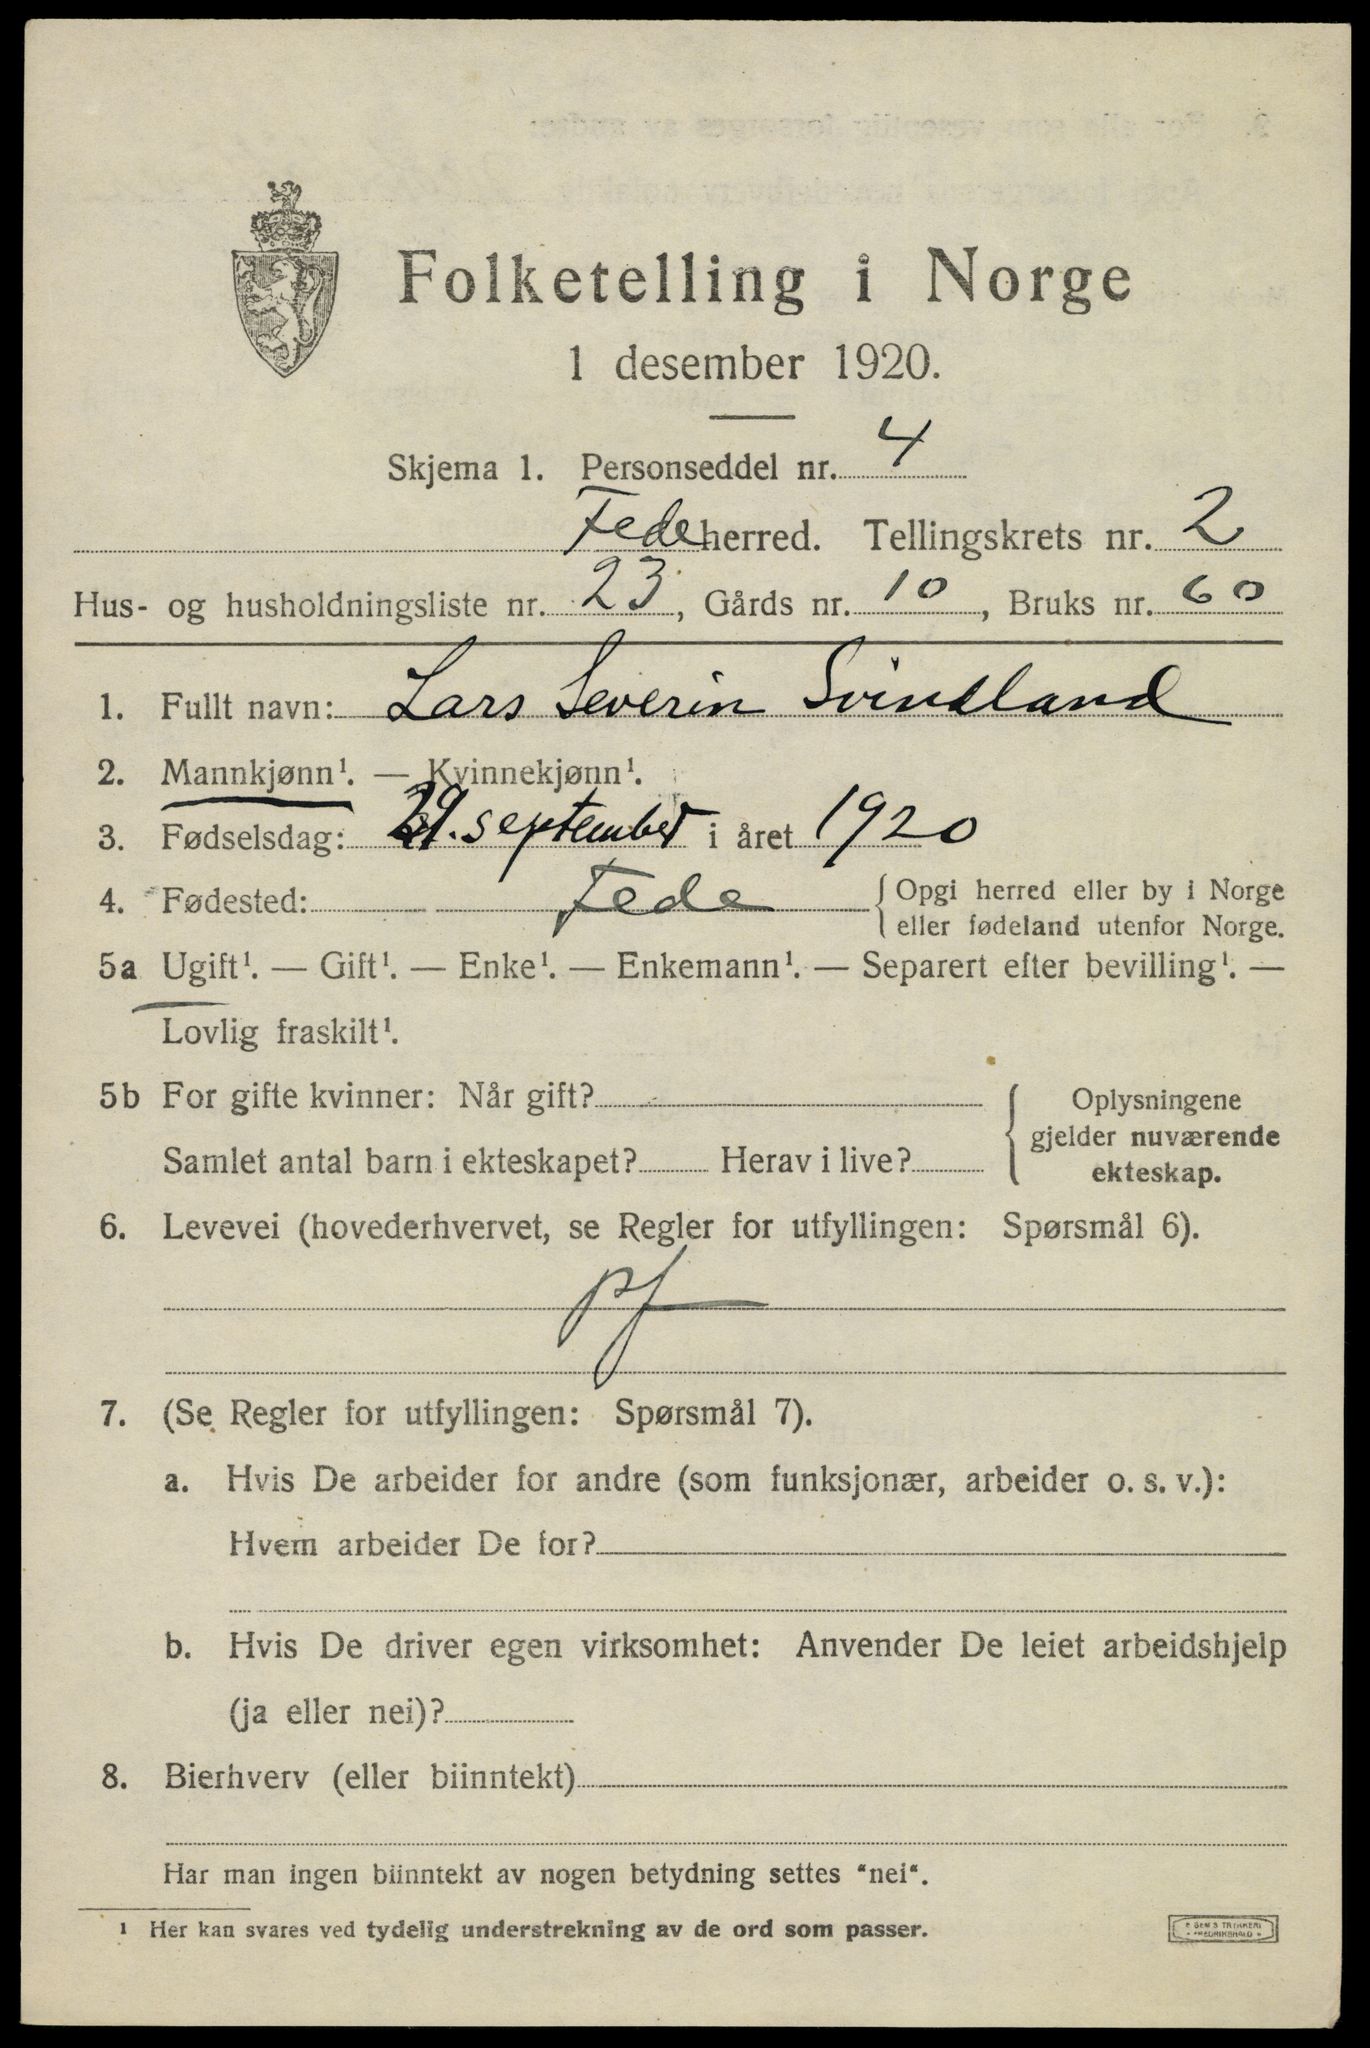 Folketelling i Norge
1 desember 1920.
Skjema 1. Personseddel nr. 4
Fede herred. Tellingskrets nr. 2
Hus- og husholdningsliste nr. 23, Gårds nr. 10, Bruks nr. 60
1. Fullt navn: Lars Severin Svindland
2. Mannkjønn¹. — Kvinnekjønn¹.
3. Fødselsdag: 29. september i året 1920
4. Fødested: Fede { Opgi herred eller by i Norge
eller fødeland utenfor Norge.
5a Ugift¹. — Gift¹. — Enke¹. — Enkemann¹. — Separert efter bevilling¹. —
Lovlig fraskilt¹.
5b For gifte kvinner: Når gift? { Oplysningene
gjelder nuværende
Samlet antal barn i ekteskapet? Herav i live? ekteskap.
6. Levevei (hovederhvervet, se Regler for utfyllingen: Spørsmål 6).
pf
7. (Se Regler for utfyllingen: Spørsmål 7).
a. Hvis De arbeider for andre (som funksjonær, arbeider o. s. v.):
Hvem arbeider De for?
b. Hvis De driver egen virksomhet: Anvender De leiet arbeidshjelp
(ja eller nei)?
8. Bierhverv (eller biinntekt)
Har man ingen biinntekt av nogen betydning settes “nei“.
¹ Her kan svares ved tydelig understrekning av de ord som passer.